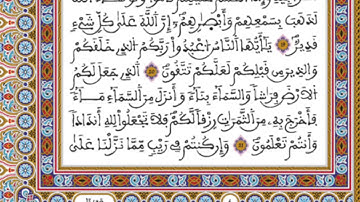 لَذَهَبَ بِسَمْعِهِمْ وَأَبْصَٰرِهِمْ إِنَّ ٱللَّهَ عَلَىٰ كُلِّ شَےْءٖ
قَدِيرٞ يَٰأَيُّهَا ٱلنَّاسُ ٱعْبُدُواْ رَبَّكُمُ ٱلَّذِے خَلَقَكُمْ
وَالَّذِينَ مِن قَبْلِكُمْ لَعَلَّكُمْ تَتَّقُونَ ٱلَّذِے جَعَلَ لَكُمُ
ٱلْأَرْضَ فِرَٰشاٗ وَالسَّمَآءَ بِنَآءٗ وَأَنزَلَ مِنَ ٱلسَّمَآءِ مَآءٗ
فَأَخْرَجَ بِهِۦ مِنَ ٱلثَّمَرَٰتِ رِزْقاٗ لَّكُمْ فَلَا تَجْعَلُواْ لِلهِ أَندَاداٗ
وَأَنتُمْ تَعْلَمُونَ وَإِن كُنتُمْ فِے رَيْبٖ مِّمَّا نَزَّلْنَا عَلَىٰ